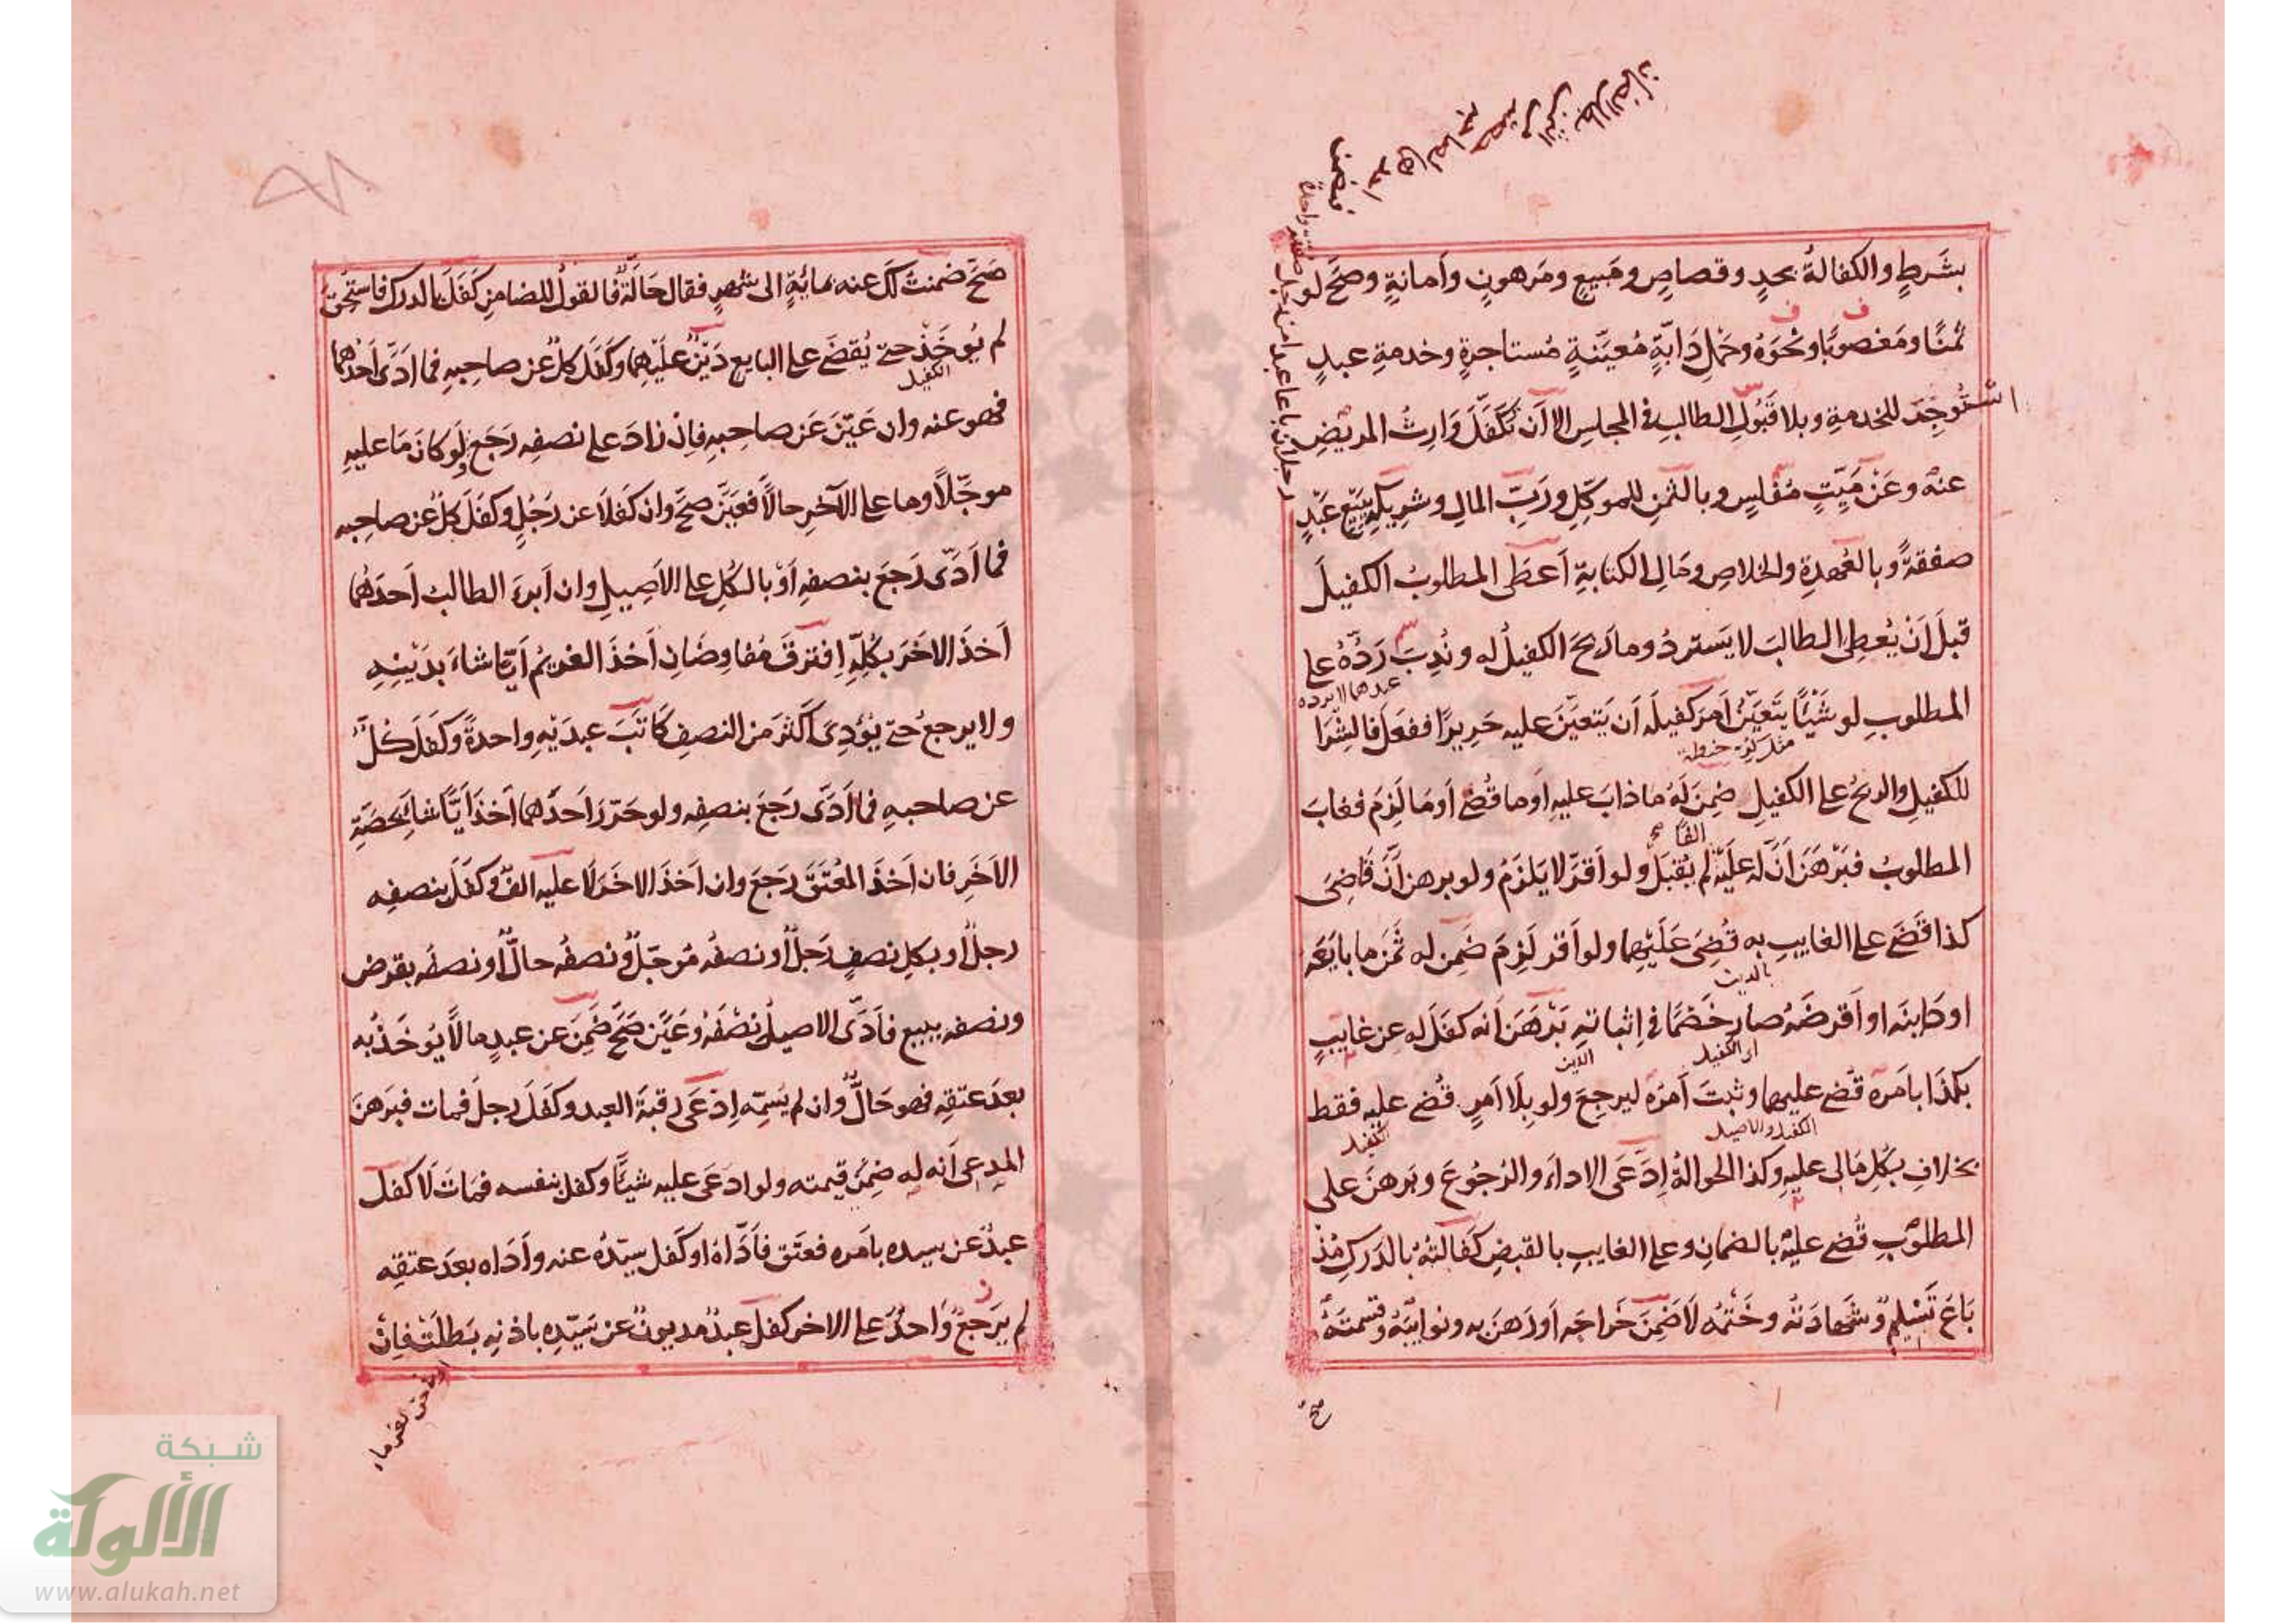 بشَرطٍ والكفالةُ بحدٍ وقصاصٍ ومَبيعٍ ومَرهونٍ وأمانةٍ وصَحَّ لو
ثمنًا ومَغصوبًا ونحوَهُ وحَملِ دَابّةٍ مُعيّنةٍ مُستاجرةٍ وخدمةِ عبدٍ
استُوجِدَ للخدمةِ وبلا قَبُولِ الطالبِ في المجلسِ الا أن تكفّلَ وَارِثُ المريضِ
عنهُ وعَنْ مَيّتٍ مُفلسٍ وبالثمنِ للموكّلِ ورَبِّ المالِ وشريكٍ ببَيعِ عَبْدٍ
صفقةً وبالعُهدةِ والخلاصِ ومَالِ الكتابةِ أعطَى المطلوبُ الكفيلَ
قبلَ اَنْ يُعطِى الطالبَ لا يَستردُ وما ربحَ الكفيلُ له ونُدِبَ رَدُّهُ على
المطلوبِ لو شَيْئًا يتَعيّنُ أمرَ كفيلَه أن يَتعيّنَ عليه حَريرًا ففعَلَ فالشِرَا
عبدهما لا برده
للكفيلِ والربحُ على الكفيلِ ضمِنَ لَهُ ماذابَ عليهِ اَوما قُضِى أومَا لَزِمَ فغابَ
مثل كر حنطة
المطلوبُ فبَرْهَنَ أنَّ له عليَه الفًا لم يُقبَل ولو أقرَّ لا يَلزَمُ ولو برهن أنَّ قَاضِىَ
كذا قَضَى على الغايبِ به قُضِىَ عَلَيْهِما ولو أقر لَزِمَ ضَمِن له ثَمنَ ما بايَعَه
اودَاينَه او أقرضَهُ صار خَصْمًا في اِثباتهِ بَرْهَنَ أنه كفَلَ له عن غايبٍ
بالدين
بكذَا بامَره قُضى عليهما وثبتَ أمرُه ليرجعَ ولو بِلَا أمرٍ قُضى عليه فقط
اى الكفيل
الدين
بخلافِ بكلِ مَالى عليهِ وكذا الحوالةُ اِدَّعَى الاداءَ والرُجُوعَ وبَرهنَ على
الكفيل والاصيل
الكفيل
المطلوبِ قُضى عليهُ بالضمانِ وعلى الغايبِ بالقبضِ كَفَالتُهُ بالدَركِ مُذ
بَاعَ تَسْليمٌ وشَهادَتهُ وخَتْمُه لَا ضَمِنَ خَراجَه أورَهنَ به ونوايبَهُ وقسمتَهُ
رجلان باعا عبدا من رجل صفقة واحدة
صح
صَحَّ ضمنتُ لَكَ عنه بمائةٍ الى شهرٍ فقال حَالّةٌ فالقولُ للضامنِ كَفَلَ بالدرك فاستُحقَّ
لم يُوخَذْ حتى يُقضَى على البايعِ دَيْنٌ عليْهما وكَفَلَ كلٌّ عن صاحِبهِ فما أدَّى أحدُهما
الكفيل
فهو عنه وان عَيّنَ عَن صاحِبهِ فاِن زادَ على نصفِه رَجَعَ ولَو كانَ مَا عليهِ
موجّلًا وما على الآخرِ حالًا فعَيَّنَ صَحَّ وان كفَلَا عن رَجُلٍ وكفَلَ كلٌ عن صاحِبه
فما أدَّى رَجعَ بنصفهِ اَوْ بالكُلِّ على الاصيلِ وان أبرءَ الطالبُ أحدَهُما
أخذَ الاخَرَ بكُلِّهِ اِفترقَ مُفاوِضَانِ أخذَ الغريمُ أيّا شاءَ بدَيْنِهِ
ولا يرجعُ حتى يُؤدِىَ أكثرَ من النصفِ كَاتَبَ عبدَيْهِ واحدةً وكفَلَ كُلٌّ
عن صاحبهِ فما أدَّى رَجعَ بنصفِه ولو حَرّرَ أحدَهما أخذَ أيًّا شاءَ بحصّةِ
الاخَرِ فان أخذَ المُعتَقَ رجَعَ وان أخذَ الاخَرَ لا عليه الفٌ وكفَلَ بنصفِه
رجلٌ اوبكلِ نصفٍ رَجلٌ اونصفُه مُوجّلٌ ونصفُه حالٌّ اونصفُه بقرض
ونصفه ببيع فأدَّى الاصيلُ نصْفَهُ وعَيَّن صَحَّ ضَمِنَ عن عبدٍ مالًا يُوخَذُ به
بعدَ عتقِه فهو حَالٌّ وان لم يُسمِّه اِدعَى رقبةَ العبد وكفَلَ رجلٌ فمات فبَرهنَ
المدعى أنه له ضِمنَ قيمته ولو ادعَى عليه شيئًا وكفل بنفسه فمَاتَ لَا كفل
عبدٌ عن سيده بامَره فعتَق فأدَّاهُ اوكَفل سيّدُه عنه وأدَاه بعدَ عتقِه
لم يَرجعْ وَاحدٌ على الاخر كفلَ عبدٌ مديونٌ عن سَيّدِه باذنِهِ بَطلَتْ فاِنْ
شبكة
الألوكة
www.alukah.net